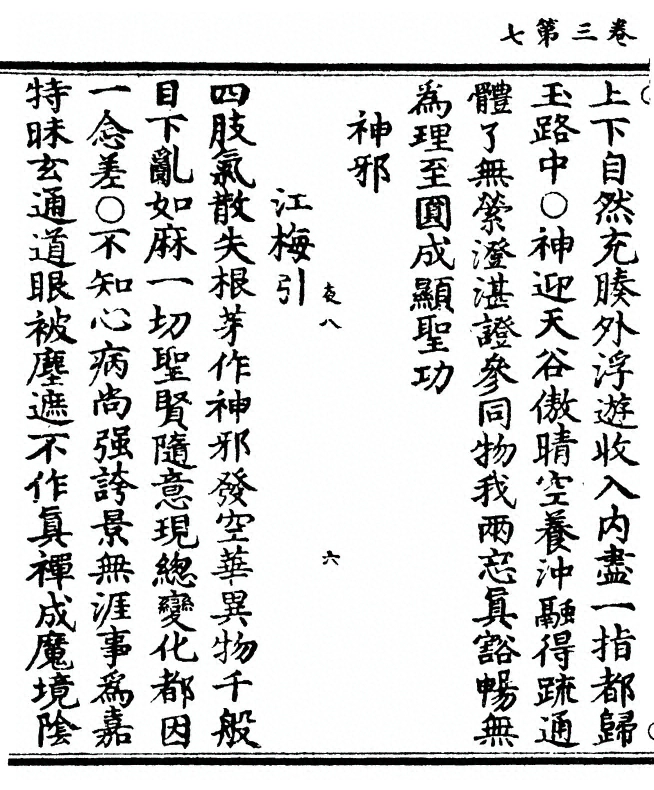 卷三第七
上下自然充腠外浮遊收入内盡一指都歸
玉路中〇神迎天谷傲晴空養沖融得疏通
體了無縈澄湛證參同物我兩忘眞豁暢無
為理至圓成顯聖功
神邪
江梅引
夜八
六
四肢氣散失根芽作神邪發空華異物千般
目下亂如麻一切聖賢隨意現總變化都因
一念差〇不知心病尚强誇景無涯事爲嘉
特昧玄通道眼被塵遮不作眞禪成魔境陰